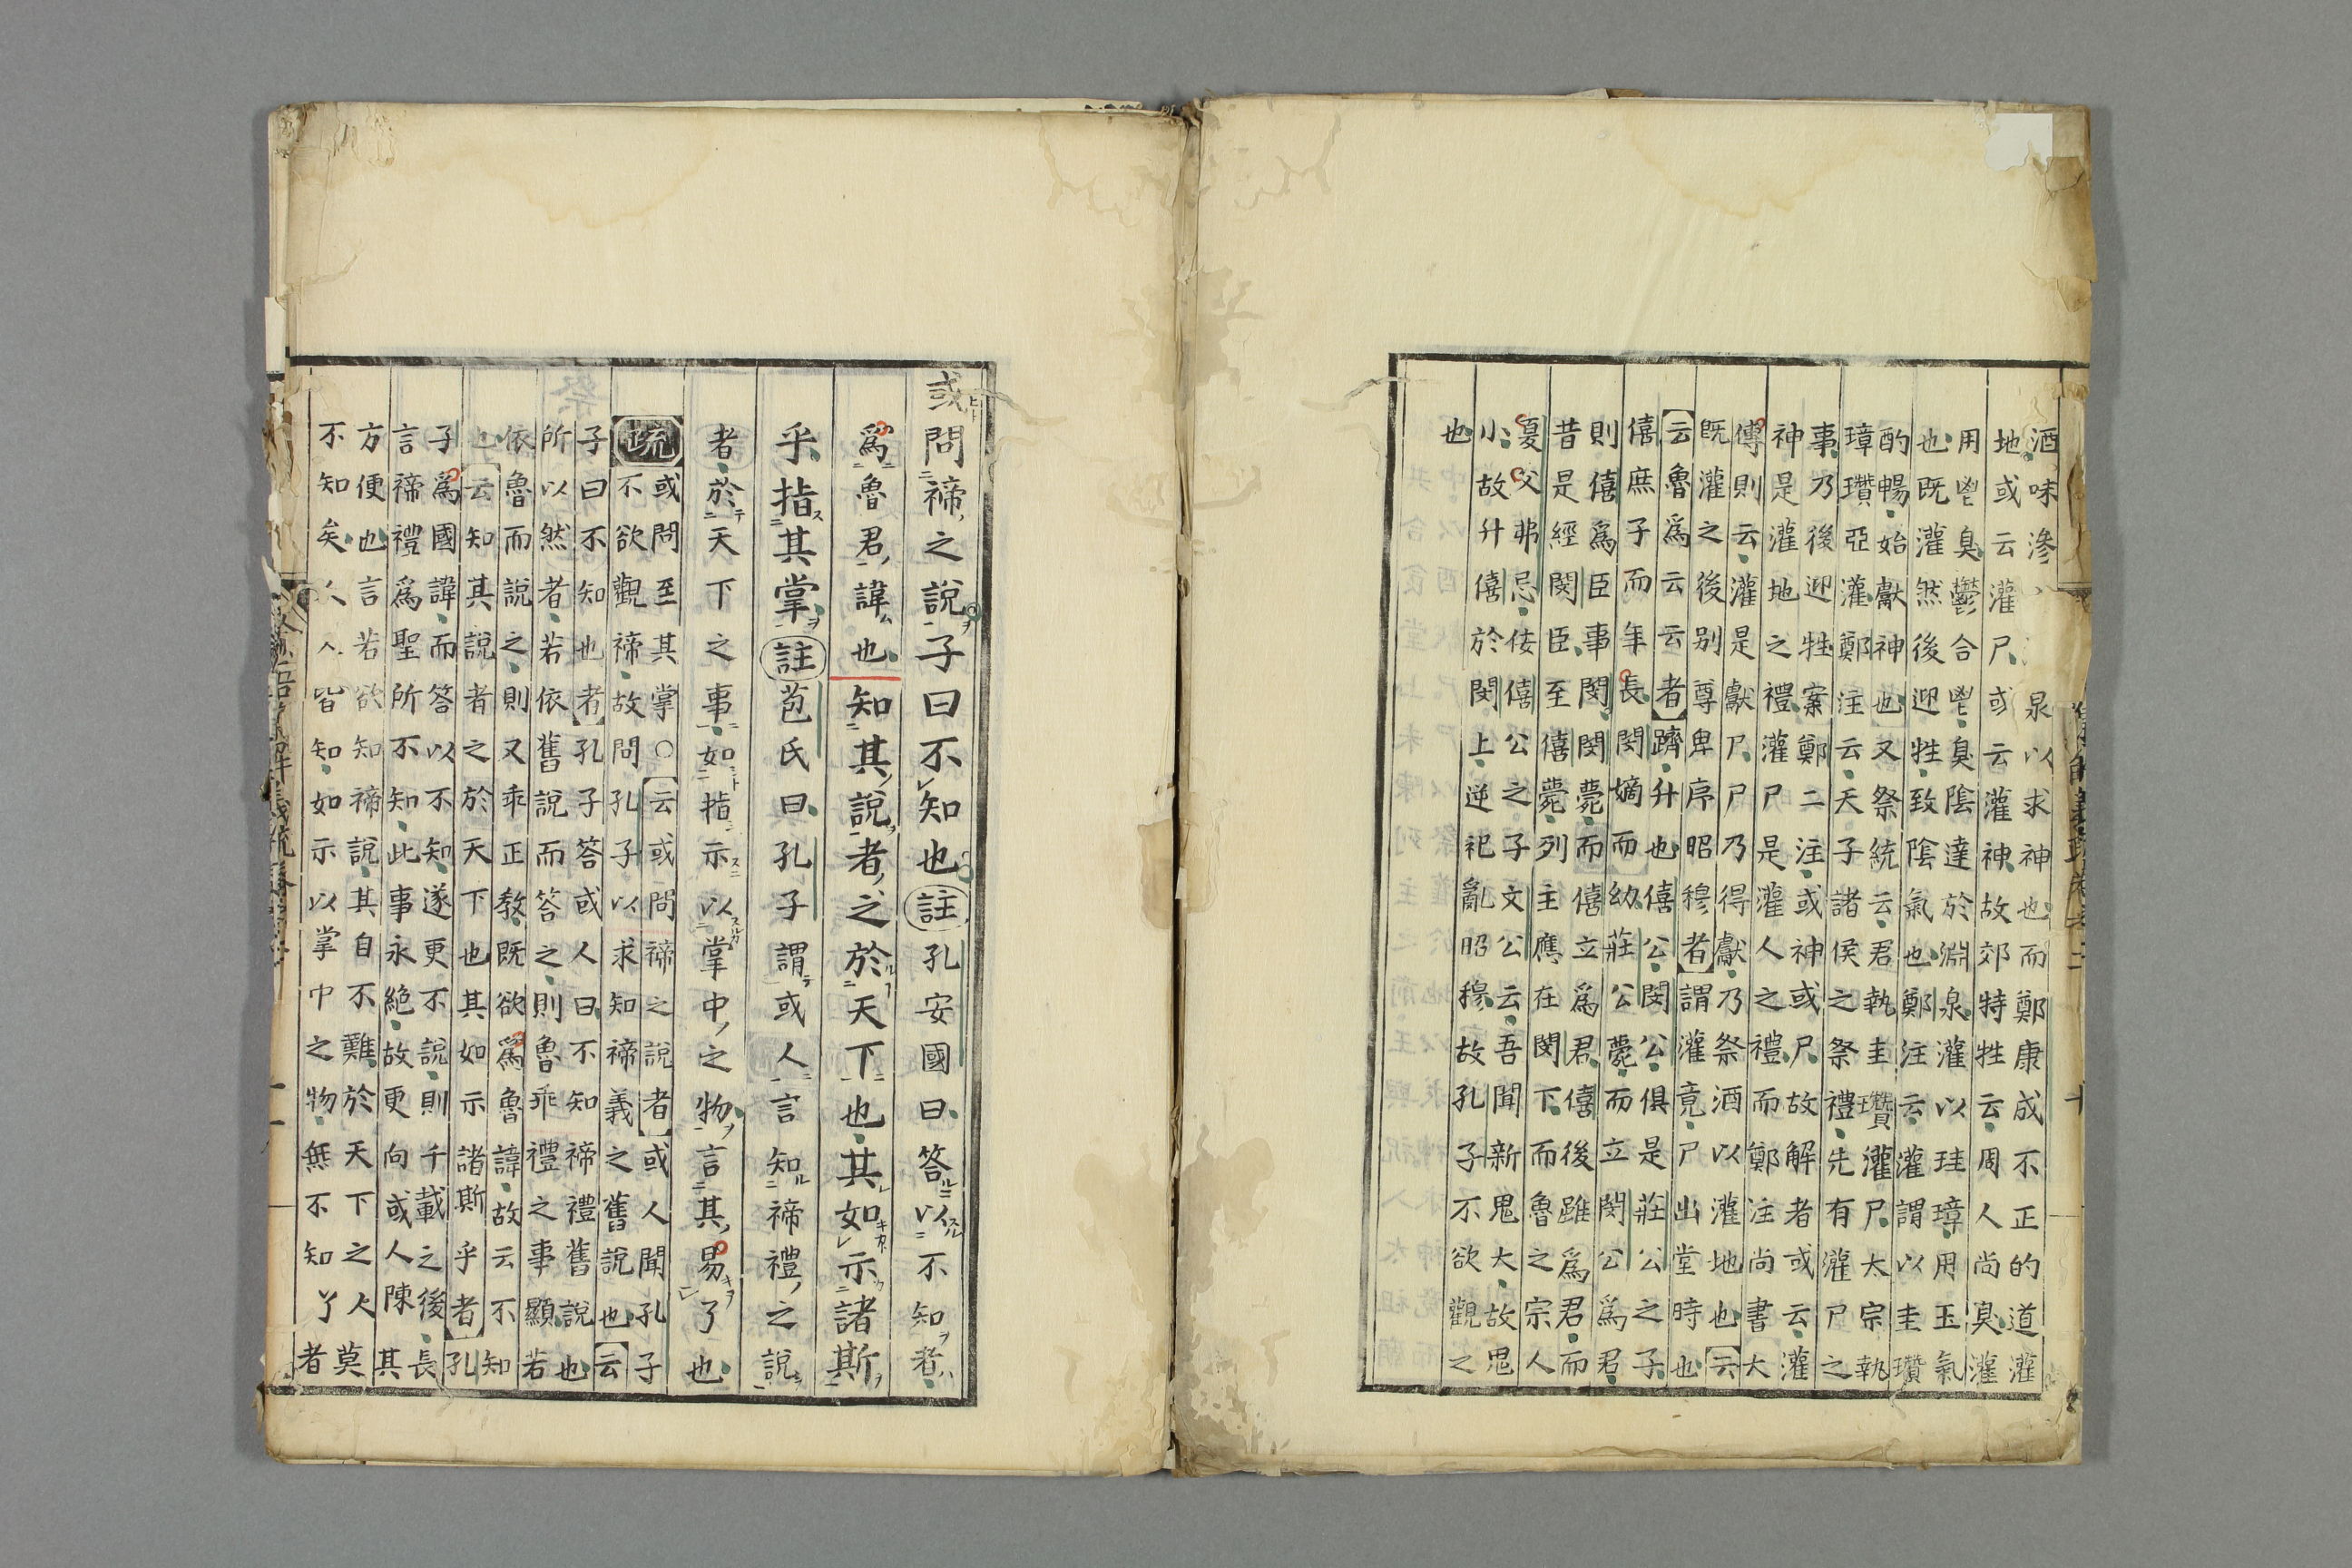 酒味滲泉以求神也而鄭康成不正的道灌
地或云灌尸或云灌神故郊特牲云周人尚臭灌
用鬯臭鬱合鬯臭陰達於淵泉灌以珪璋用玉氣
也既灌然後迎牲致陰氣也鄭注云灌謂以圭瓚
酌暢始獻神也又祭統云君執圭瓚灌尸太宗執
璋瓚亞灌鄭注云天子諸侯之祭禮先有灌尸之
事乃後迎牲案鄭二注或神或尸故解者或云灌
神是灌地之禮灌尸是灌人之禮而鄭注尚書大
傅則云灌是獻尸尸乃得獻乃祭酒以灌地也云
既灌之後別尊卑序昭穆者謂灌竟尸出堂時也
云魯爲云云者躋升也僖公閔公俱是莊公之子
僖庶子而年長閔嫡而幼莊公薨而立閔公爲君
則僖爲臣事閔閔薨而僖立爲君僖後雖爲君而
昔是經閔臣至僖薨列主應在閔下而魯之宗人
夏父弗忌佞僖公之子文公云吾聞新鬼大故鬼
小故升僖於閔上逆祀亂昭穆故孔子不欲觀之
也
或問禘之說子曰不知也註孔安國曰答以不知者
爲魯君諱也知其說者之於天下也其如示諸斯
乎指其掌註苞氏曰孔子謂或人言知禘禮之說
者於天下之事如指示以掌中之物言其易了也
疏或問至其掌○云或問禘之說者或人聞孔子
不欲觀禘故問孔子以求知禘義之舊說也云
子曰不知也者孔子答或人曰不知禘禮舊說也
所以然者若依舊說而答之則魯乖禮之事顯若
依魯而說之則又乖正教既欲爲魯諱故云不知
也云知其說者之於天下也其如示諸斯乎者孔
子爲國諱而答以不知遂更不說則千載之後長
言禘禮爲聖所不知此事永絕故更向或人陳其
方便也言若欲知禘說其自不難於天下之人莫
不知矣人人皆知如示以掌中之物無不知了者